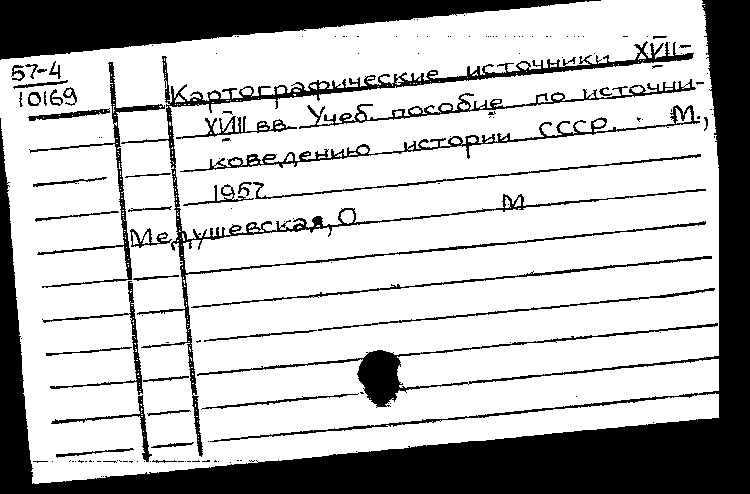 57-4
10169
Картографические источники XVII-
XVIII вв. Учеб. пособие по источни-
коведению истории СССР. М.,
1957
М
Медушевская, О